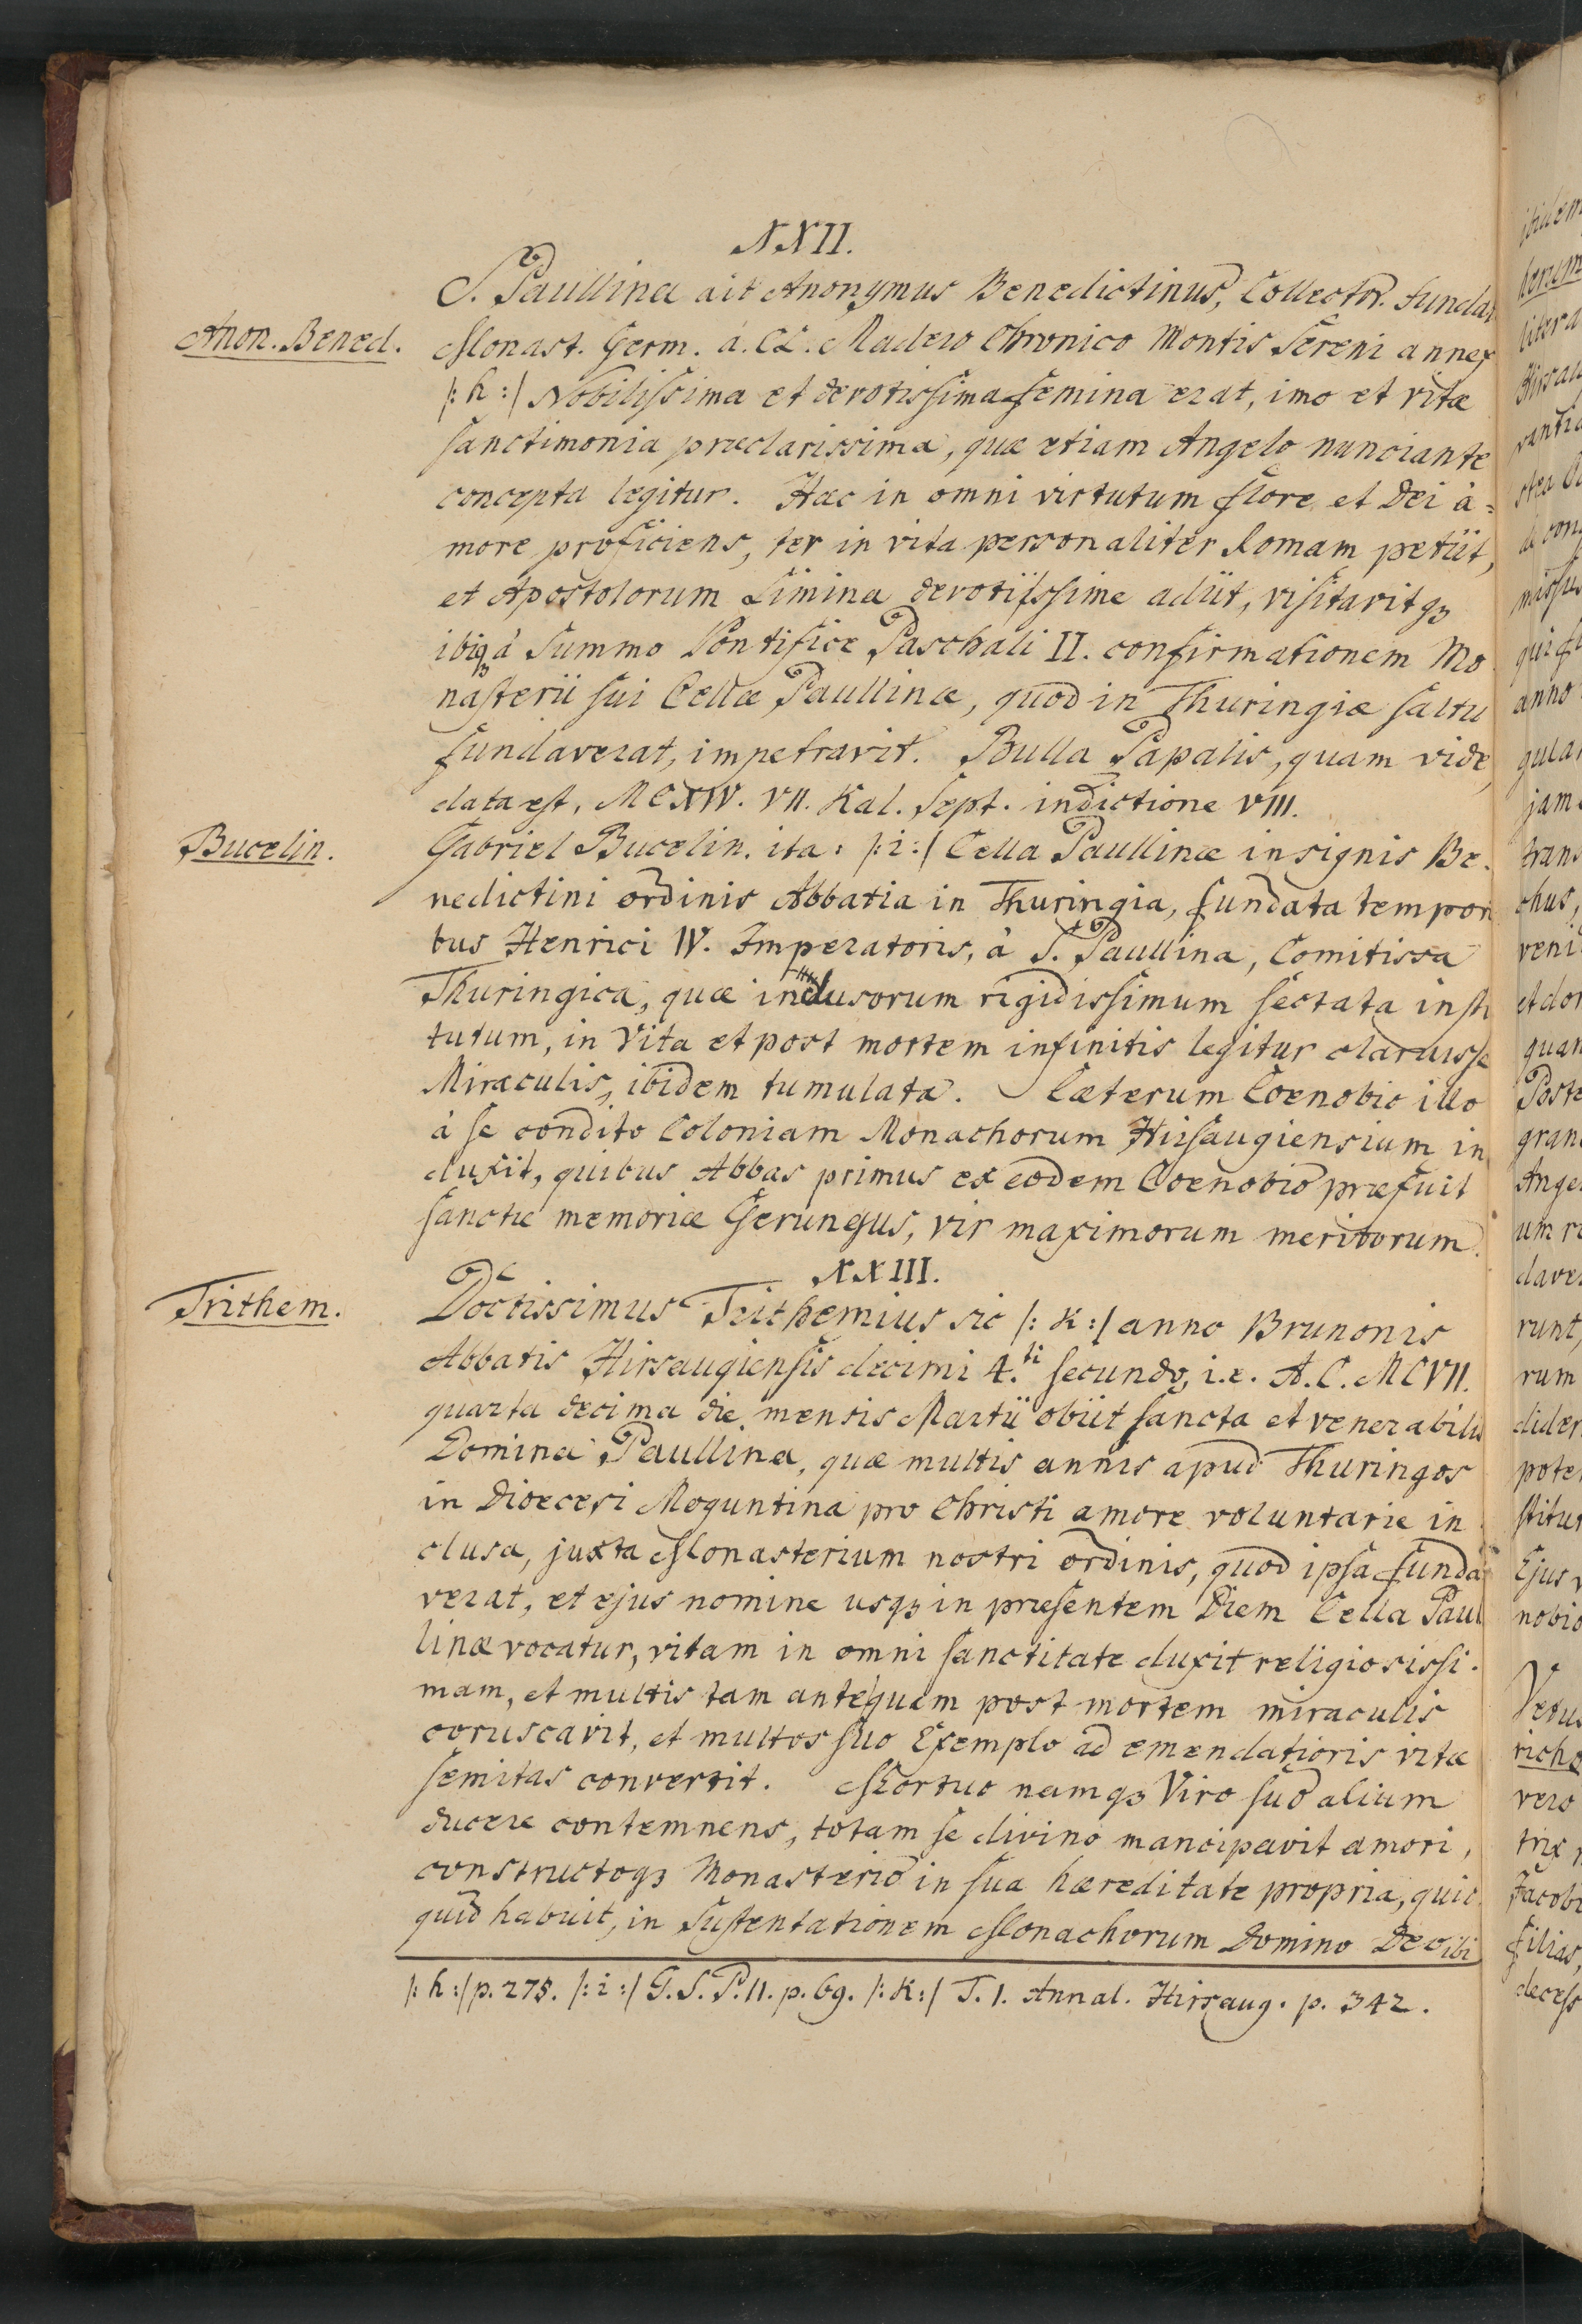 XXII.
S. Paullina ait Anonymus Benedictinus, Collector. Fundat
Anon. Bened.
Monast. Germ. a. Cl. Madero Chronico Montis Sereni annex
/: h :/ Nobilissima et devotissima femina erat, imo et vitæ
sanctimonia præclarissima, quæ etiam Angelo nunciante
concepta legitur. Hæc in omni virtutum flore et Dei a=
more proficiens, ter in vita personaliter Romam petiit,
et Apostolorum Limina devotissime adiit, visitavitq3
ibiq3 à Summo Pontifice Paschali II. confirmationem Mo
nasterii sui Cellæ Paullinæ, quod in Thuringiæ saltu
fundaverat, impetravit. Bulla Papalis, quam vide,
data est, MCXIV. VII. Kal. Sept. indictione VIII.
Bucelin.
Gabriel Bucelin. ita: /: i :/ Cella Paullinæ insignis Be.
nedictini ordinis Abbatia in Thuringia, fundata tempori
bus Henrici IV. Imperatoris, à S. Paullina, Comitissa
Thuringica, quæ inclusorum rigidissimum sectata insti
tutum, in Vita et post mortem infinitis legitur claruisse
Miraculis, ibidem tumulata. Cæterum Coenobio illo
à se condito Coloniam Monachorum Hirsaugiensium in
duxit, quibus Abbas primus ex eodem Coenobio præfuit
sanctæ memoriæ Gerungus, vir maximorum meritorum.
XXIII.
Trithem.
Doctissimus Trithemius sic /: k :/ anno Brunonis
Abbatis Hirsaugiensis decimi 4.ti secundo, i.e. A. C. MCVII.
quarta decima die mensis Martii obiit sancta et venerabilis
Domina Paullina, quæ multis annis apud Thuringos
in Dioecesi Moguntina pro Christi amore voluntarie in
clusa, juxta Monasterium nostri ordinis, quod ipsa funda
verat, et ejus nomine usq3 in præsentem Diem Cella Paul
linæ vocatur, vitam in omni sanctitate duxit religiosissi.
mam, et multis tam ante quam post mortem miraculis
coruscavit, et multos suo Exemplo ad emendatioris vitæ
semitas convertit. Mortuo namq3 Viro suo alium
ducere contemnens, totam se divino mancipavit amori,
constructoq3 Monasterio in sua hæreditate propria, quic
quid habuit, in Sustentationem Monachorum Domino Deo ibi
/: h :/ p. 275. /: i :/ G. S. P. II. p. 69. /: k :/ T. I. Annal. Hirsaug. p. 342.